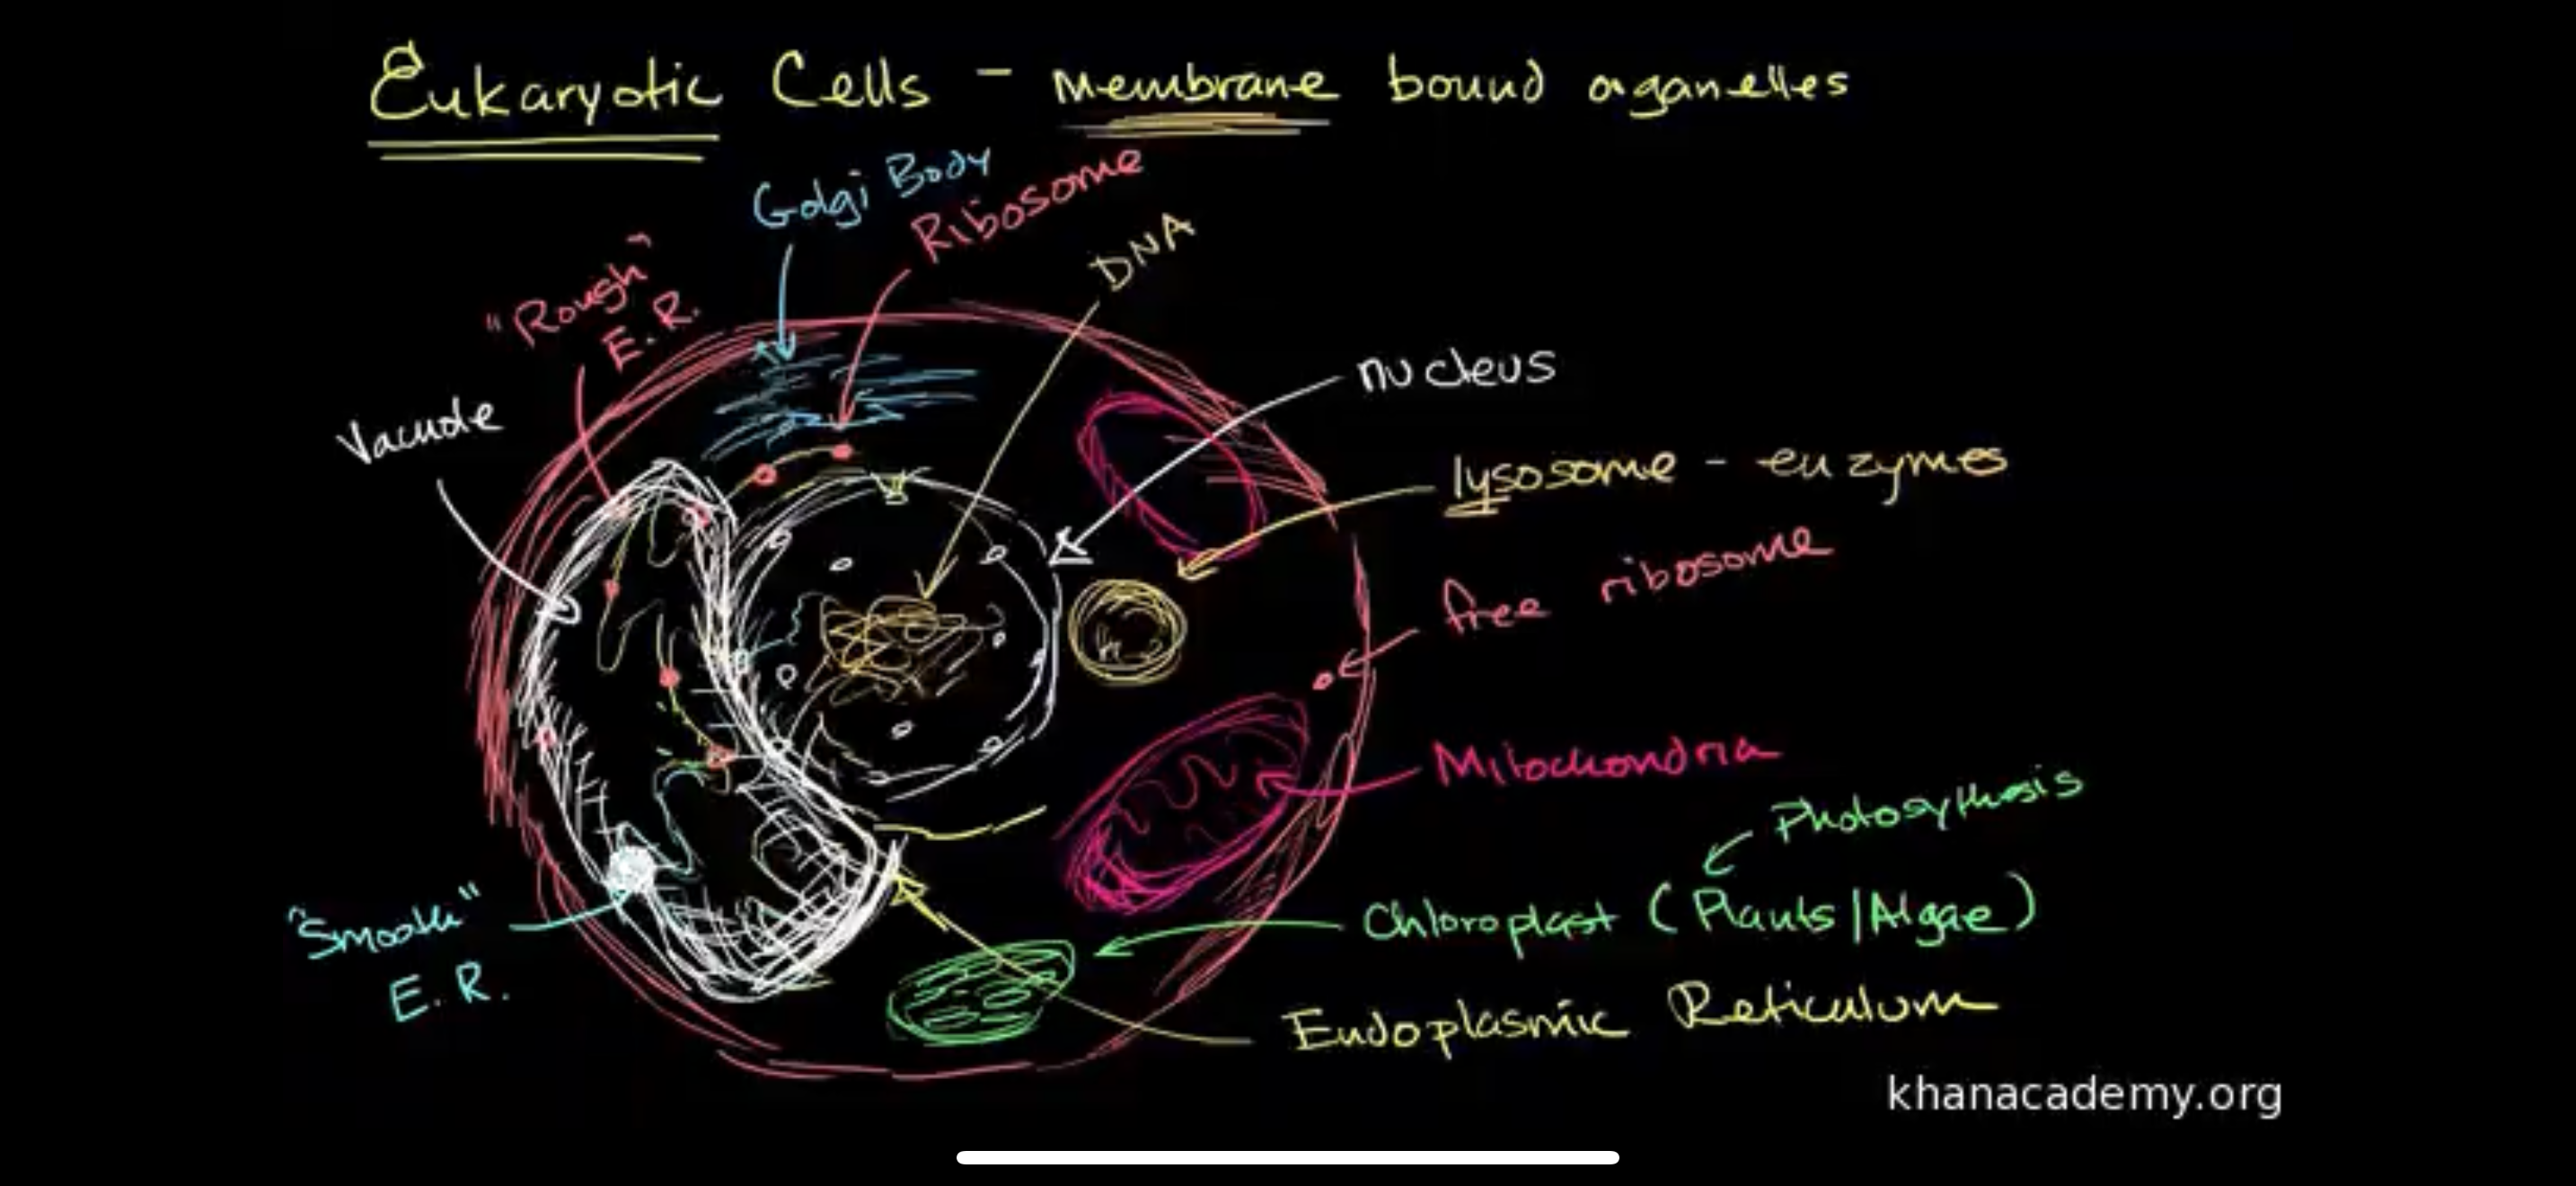 Eukaryotic Cells - Membrane bound organelles
Golgi Body
Ribosome
DNA
"Rough"
E.R.
nucleus
Vacuole
lysosome - enzymes
free ribosome
Mitochondria
Photosythesis
Chloroplast (Plants/Algae)
"Smooth"
E.R.
Endoplasmic Reticulum
khanacademy.org